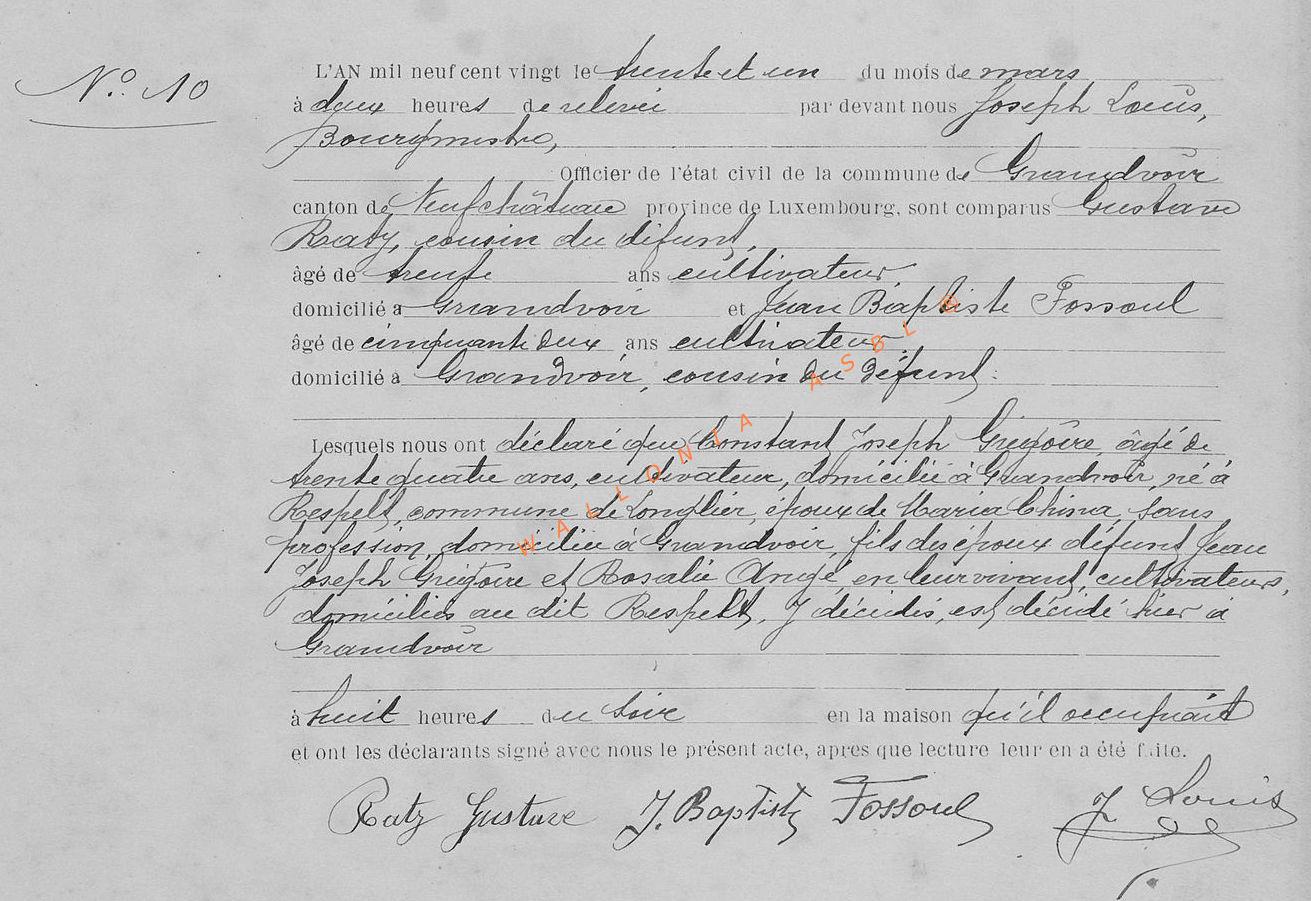 N° 10
L'AN mil neuf cent vingt le trente et un du mois de mars
à deux heures de relevée par devant nous Joseph Louis,
Bourgmestre,
Officier de l'état civil de la commune de Grandvoir
canton de Neufchâteau province de Luxembourg, sont comparus Gustave
Ratz, cousin du défunt,
âgé de trente ans cultivateur
domicilié à Grandvoir et Jean Baptiste Fossoul
âgé de cinquante deux ans cultivateur
domicilié à Grandvoir, cousin du défunt.
Lesquels nous ont déclaré que Constant Joseph Grégoire, âgé de
trente quatre ans, cultivateur, domicilié à Grandvoir, né à
Respelt, commune de Longlier, époux de Maria China, sans
profession, domiciliée à Grandvoir, fils des époux défunts Jean
Joseph Grégoire et Rosalie Angé, en leur vivant, cultivateurs,
domiciliés au dit Respelt, y décédés, est décédé hier à
Grandvoir
à huit heures du soir en la maison qu'il occupait
et ont les déclarants signé avec nous le présent acte, après que lecture leur en a été faite.
Ratz Gustave J. Baptiste Fossoul J Louis
WALLONIA ASBL ©